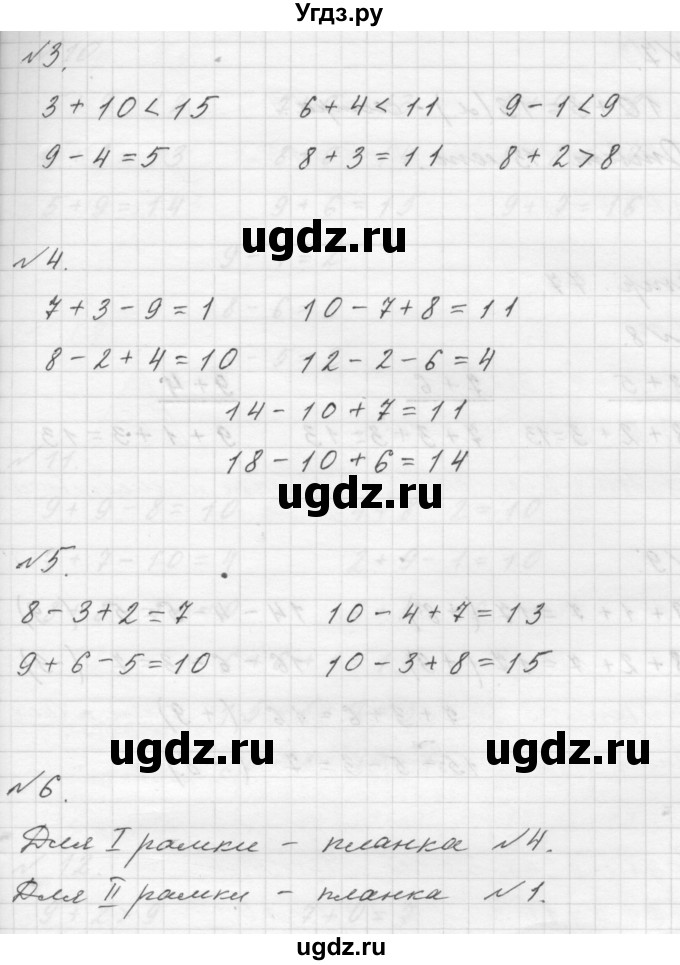 Угдз.ру
№3.
3 + 10 < 15 6 + 4 < 11 9 - 1 < 9
9 - 4 = 5 8 + 3 = 11 8 + 2 > 8
ugdz.ru
№4.
7 + 3 - 9 = 1 10 - 7 + 8 = 11
8 - 2 + 4 = 10 12 - 2 - 6 = 4
14 - 10 + 7 = 11
18 - 10 + 6 = 14
ugdz.ru
№5.
8 - 3 + 2 = 7 10 - 4 + 7 = 13
9 + 6 - 5 = 10 10 - 3 + 8 = 15
ugdz.ru ugdz.ru
№6.
Для I рамки - планка №4.
Для II рамки - планка №1.
ugdz.ru